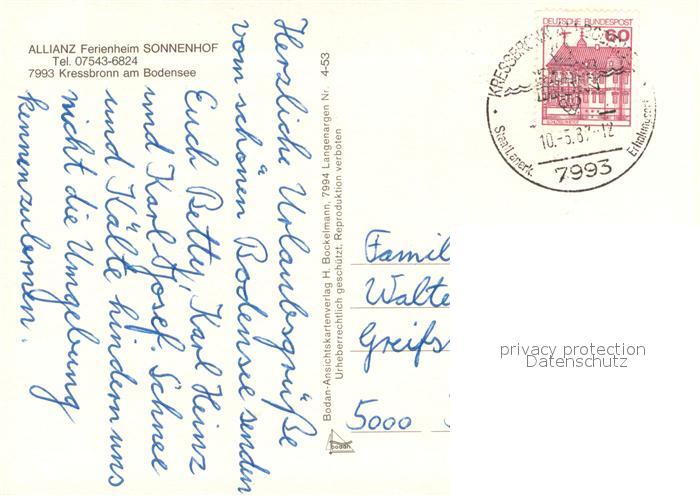 ALLIANZ Ferienheim SONNENHOF
Tel. 07543-6824
7993 Kressbronn am Bodensee
Herzliche Urlaubsgrüße
vom schönen Bodensee senden
Euch Betty, Karl Heinz
und Karl Josef. Schnee
und Kälte hindern uns
nicht die Umgebung
kennenzulernen.
Bodan-Ansichtskartenverlag H. Bockelmann, 7994 Langenargen Nr. 4-53
Urheberrechtlich geschützt. Reproduktion verboten
bodan
DEUTSCHE BUNDESPOST
60
7993
Famil
Walte
Greifs
5000
privacy protection
Datenschutz